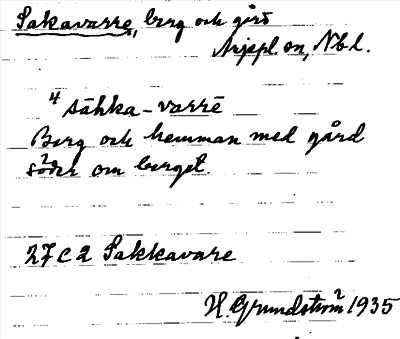 Sakavarre, berg och gård
Arjepl. sn, Nbl.
4 sāhka-varrē
Berg och hemman med gård
söder om berget.
27C2 Sakkavare
H. Grundström 1935